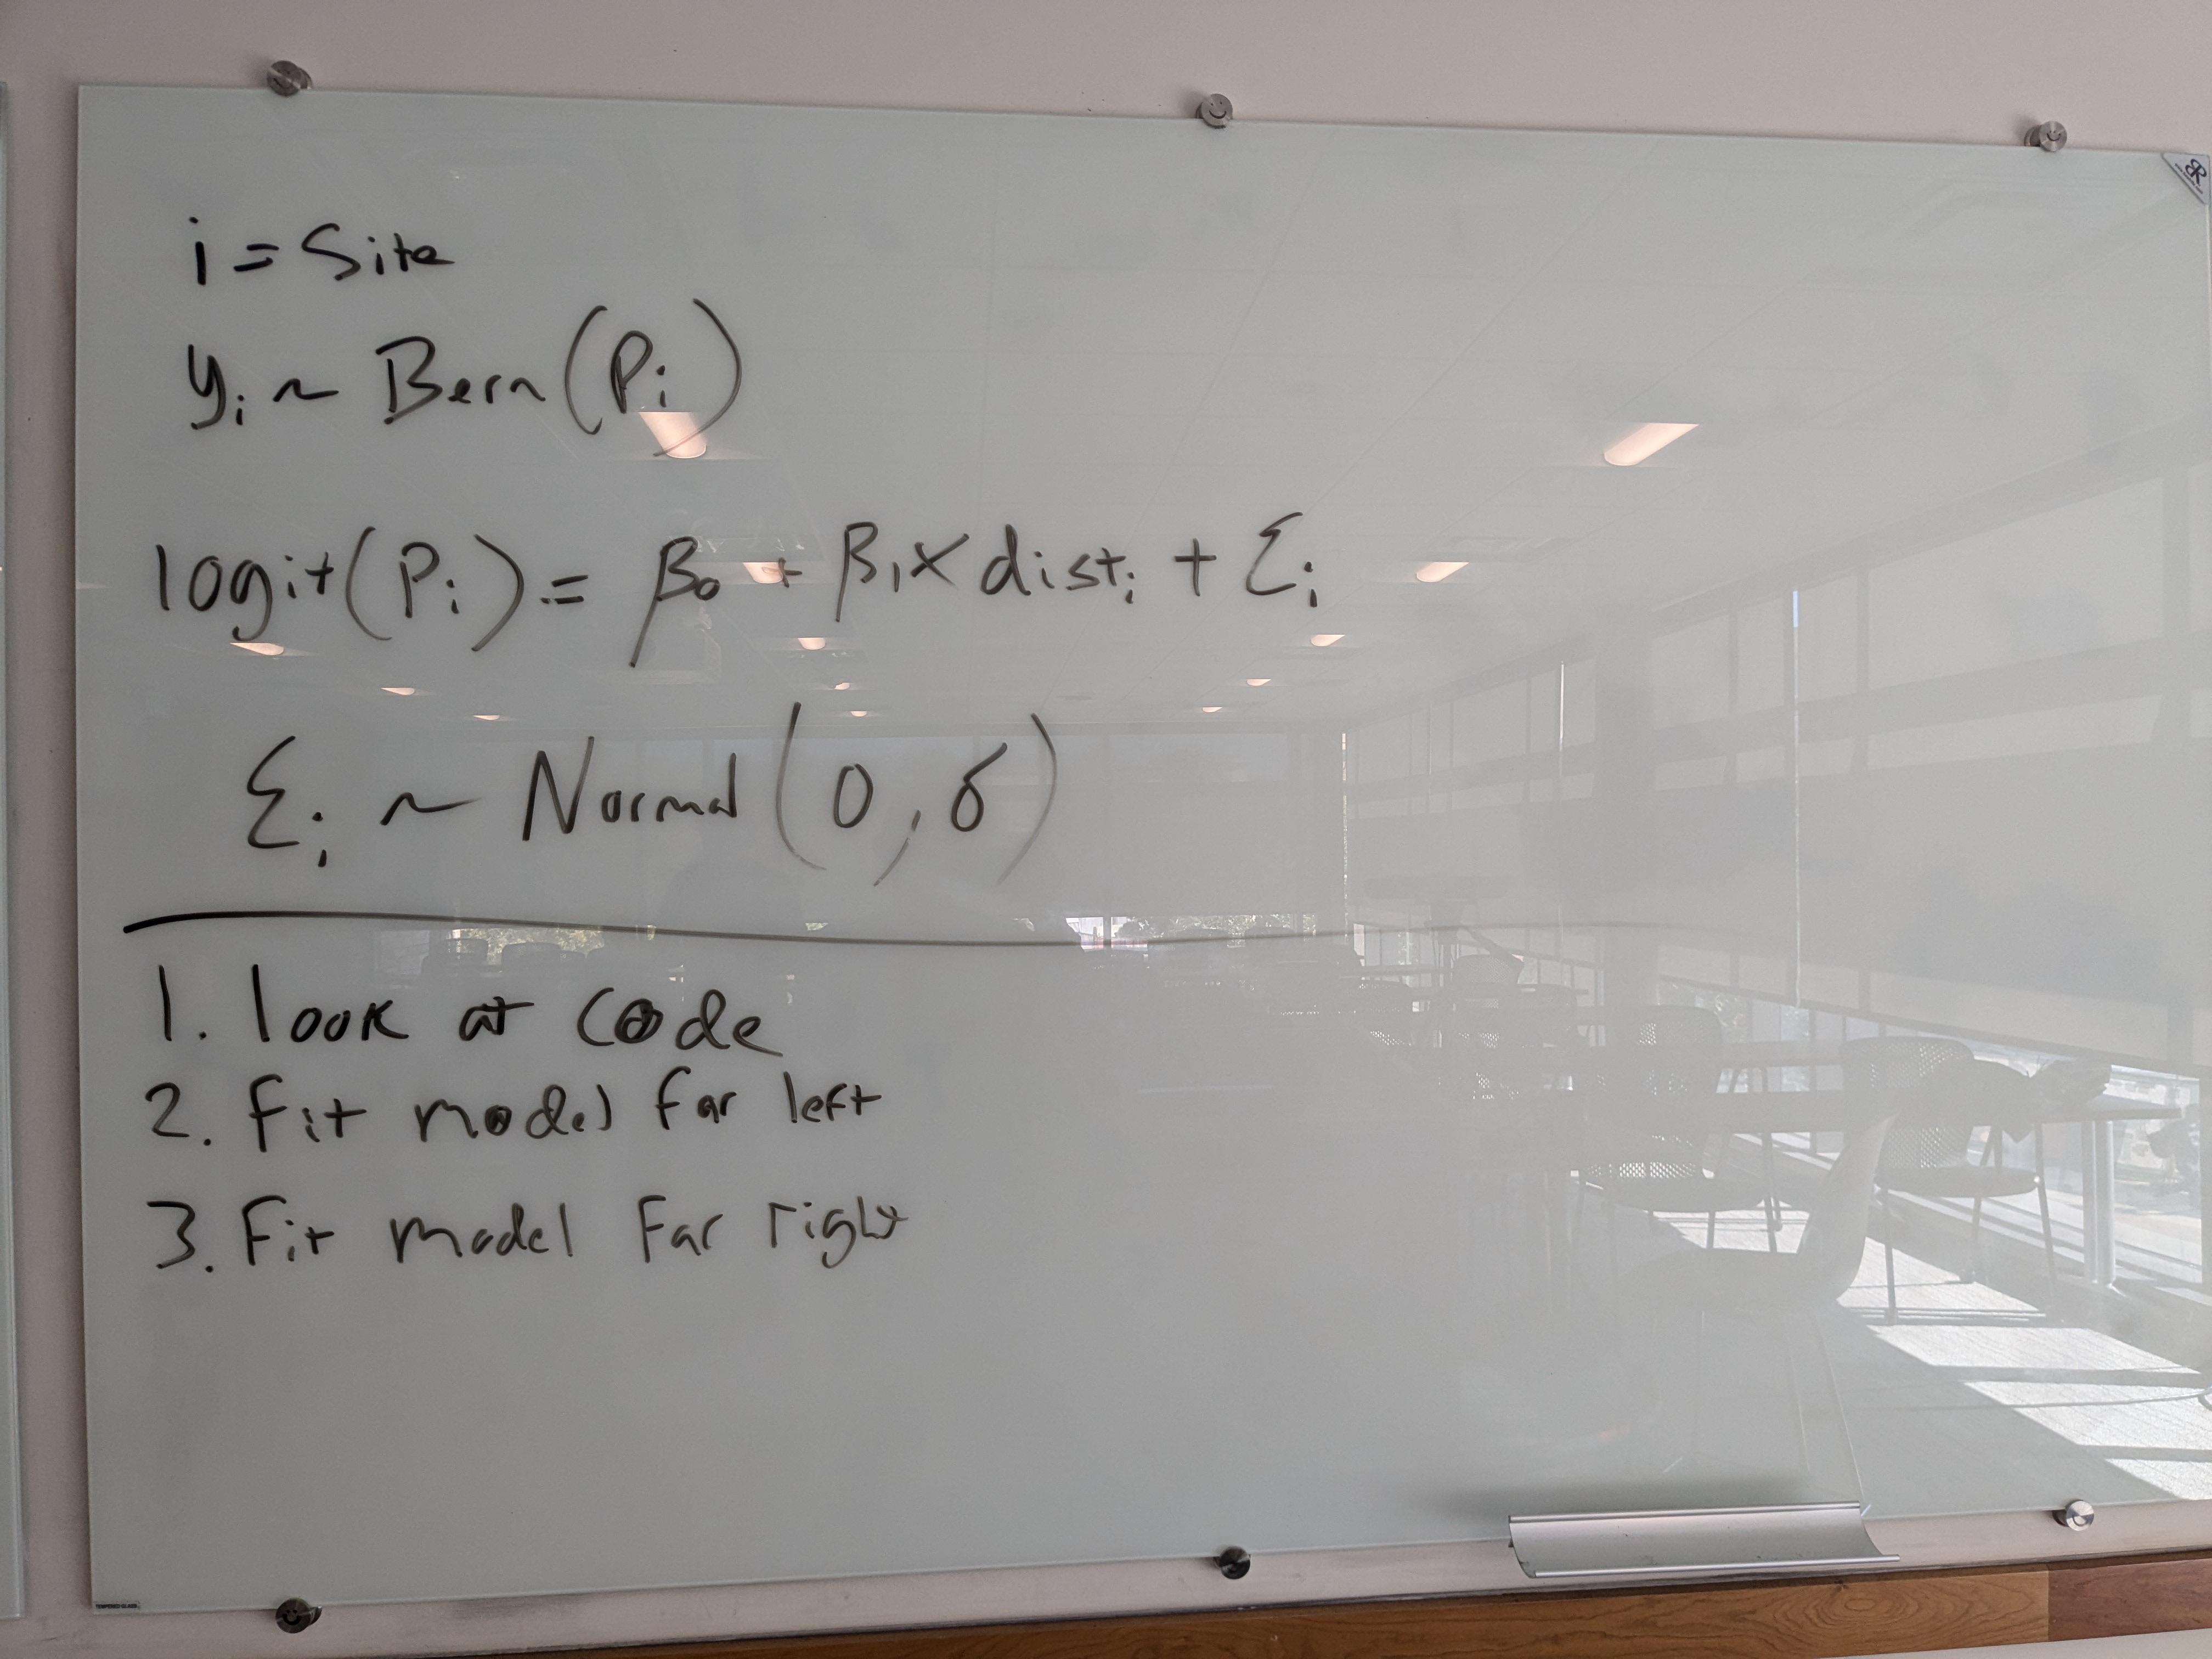 i = Site
yᵢ ~ Bern(Pᵢ)
logit(Pᵢ) = β₀ + β₁ x distᵢ + Ɛᵢ
Ɛᵢ ~ Normal(0, σ)
1. look at code
2. Fit model far left
3. Fit model Far right